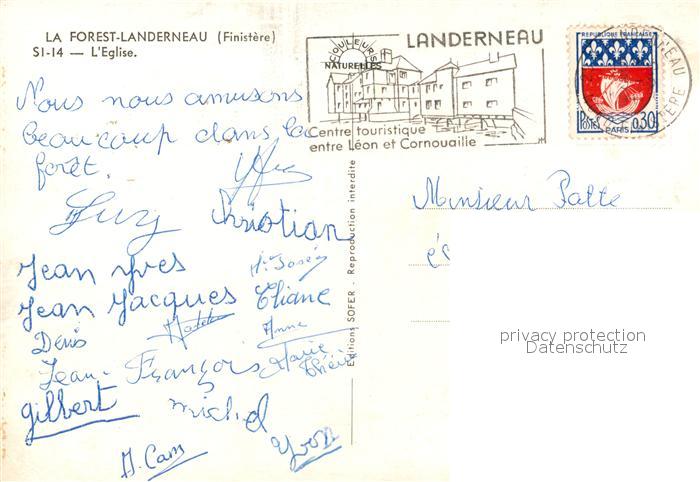 LA FOREST-LANDERNEAU (Finistère)
S1-14 — L'Eglise.
COULEURS
NATURELLES
LANDERNEAU
Centre touristique
entre Léon et Cornouaille
REPUBLIQUE FRANÇAISE
POSTES PARIS 0,30
Nous nous amusons
beaucoup dans la
forêt.
Christian
Jean Yves
Jean Jacques Eliane
Denis
Anne
Jean-François Marie
Gilbert michel
Yvon
Editions SOFER - Reproduction interdite
Monsieur Patte
privacy protection
Datenschutz